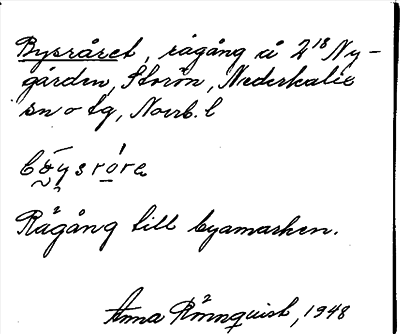 Bysråset, rågång å 2¹⁸ Ny-
gården, Storön, Nederkalix
sn o tg, Norrb. l
Rågång till byamarken.
Anna Rönnquist, 1948